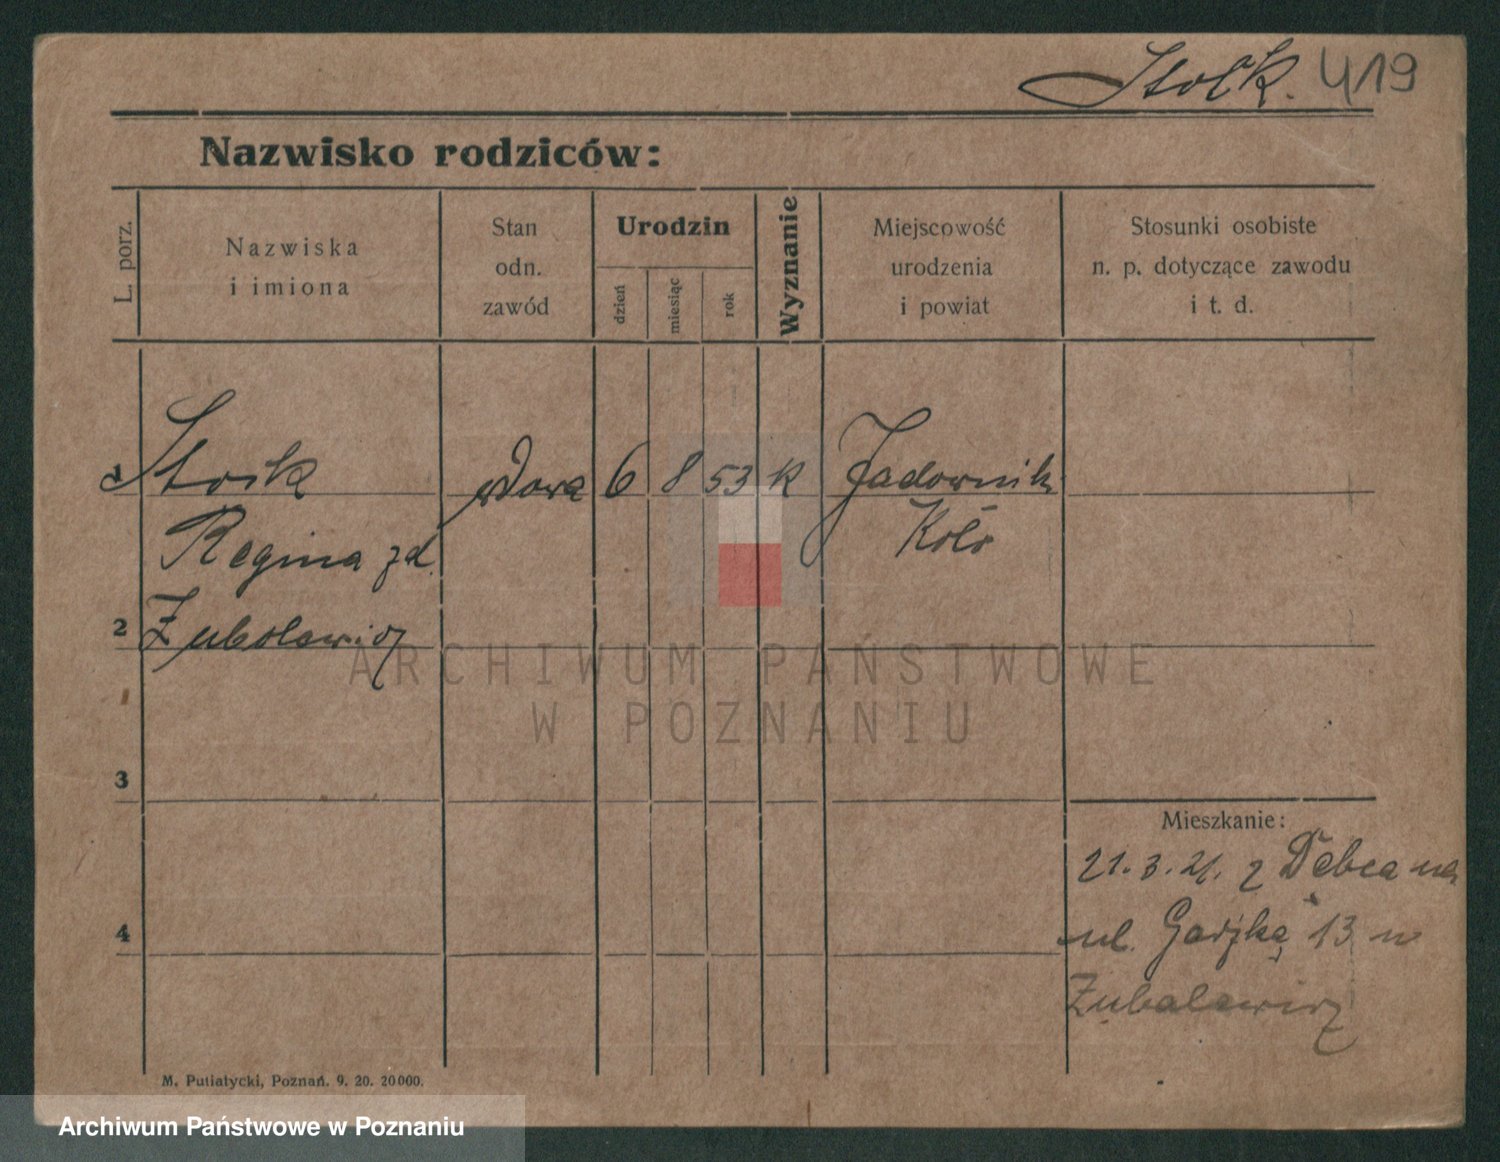 Stolk. 419
Nazwisko rodziców:
L. porz.
Nazwiska
i imiona
Stan
odn.
zawód
Urodzin
dzień
miesiąc
rok
Wyznanie
Miejscowość
urodzenia
i powiat
Stosunki osobiste
n. p. dotyczące zawodu
i t. d.
1 Stolk wdowa 6 8 53 k Jadownik
Regina Koło
2
3
4
Mieszkanie:
21.3.21. z Dębca na
ul. 13
ARCHIWUM PAŃSTWOWE
W POZNANIU
M. Putiatycki, Poznań. 9. 20. 20000.
Archiwum Państwowe w Poznaniu